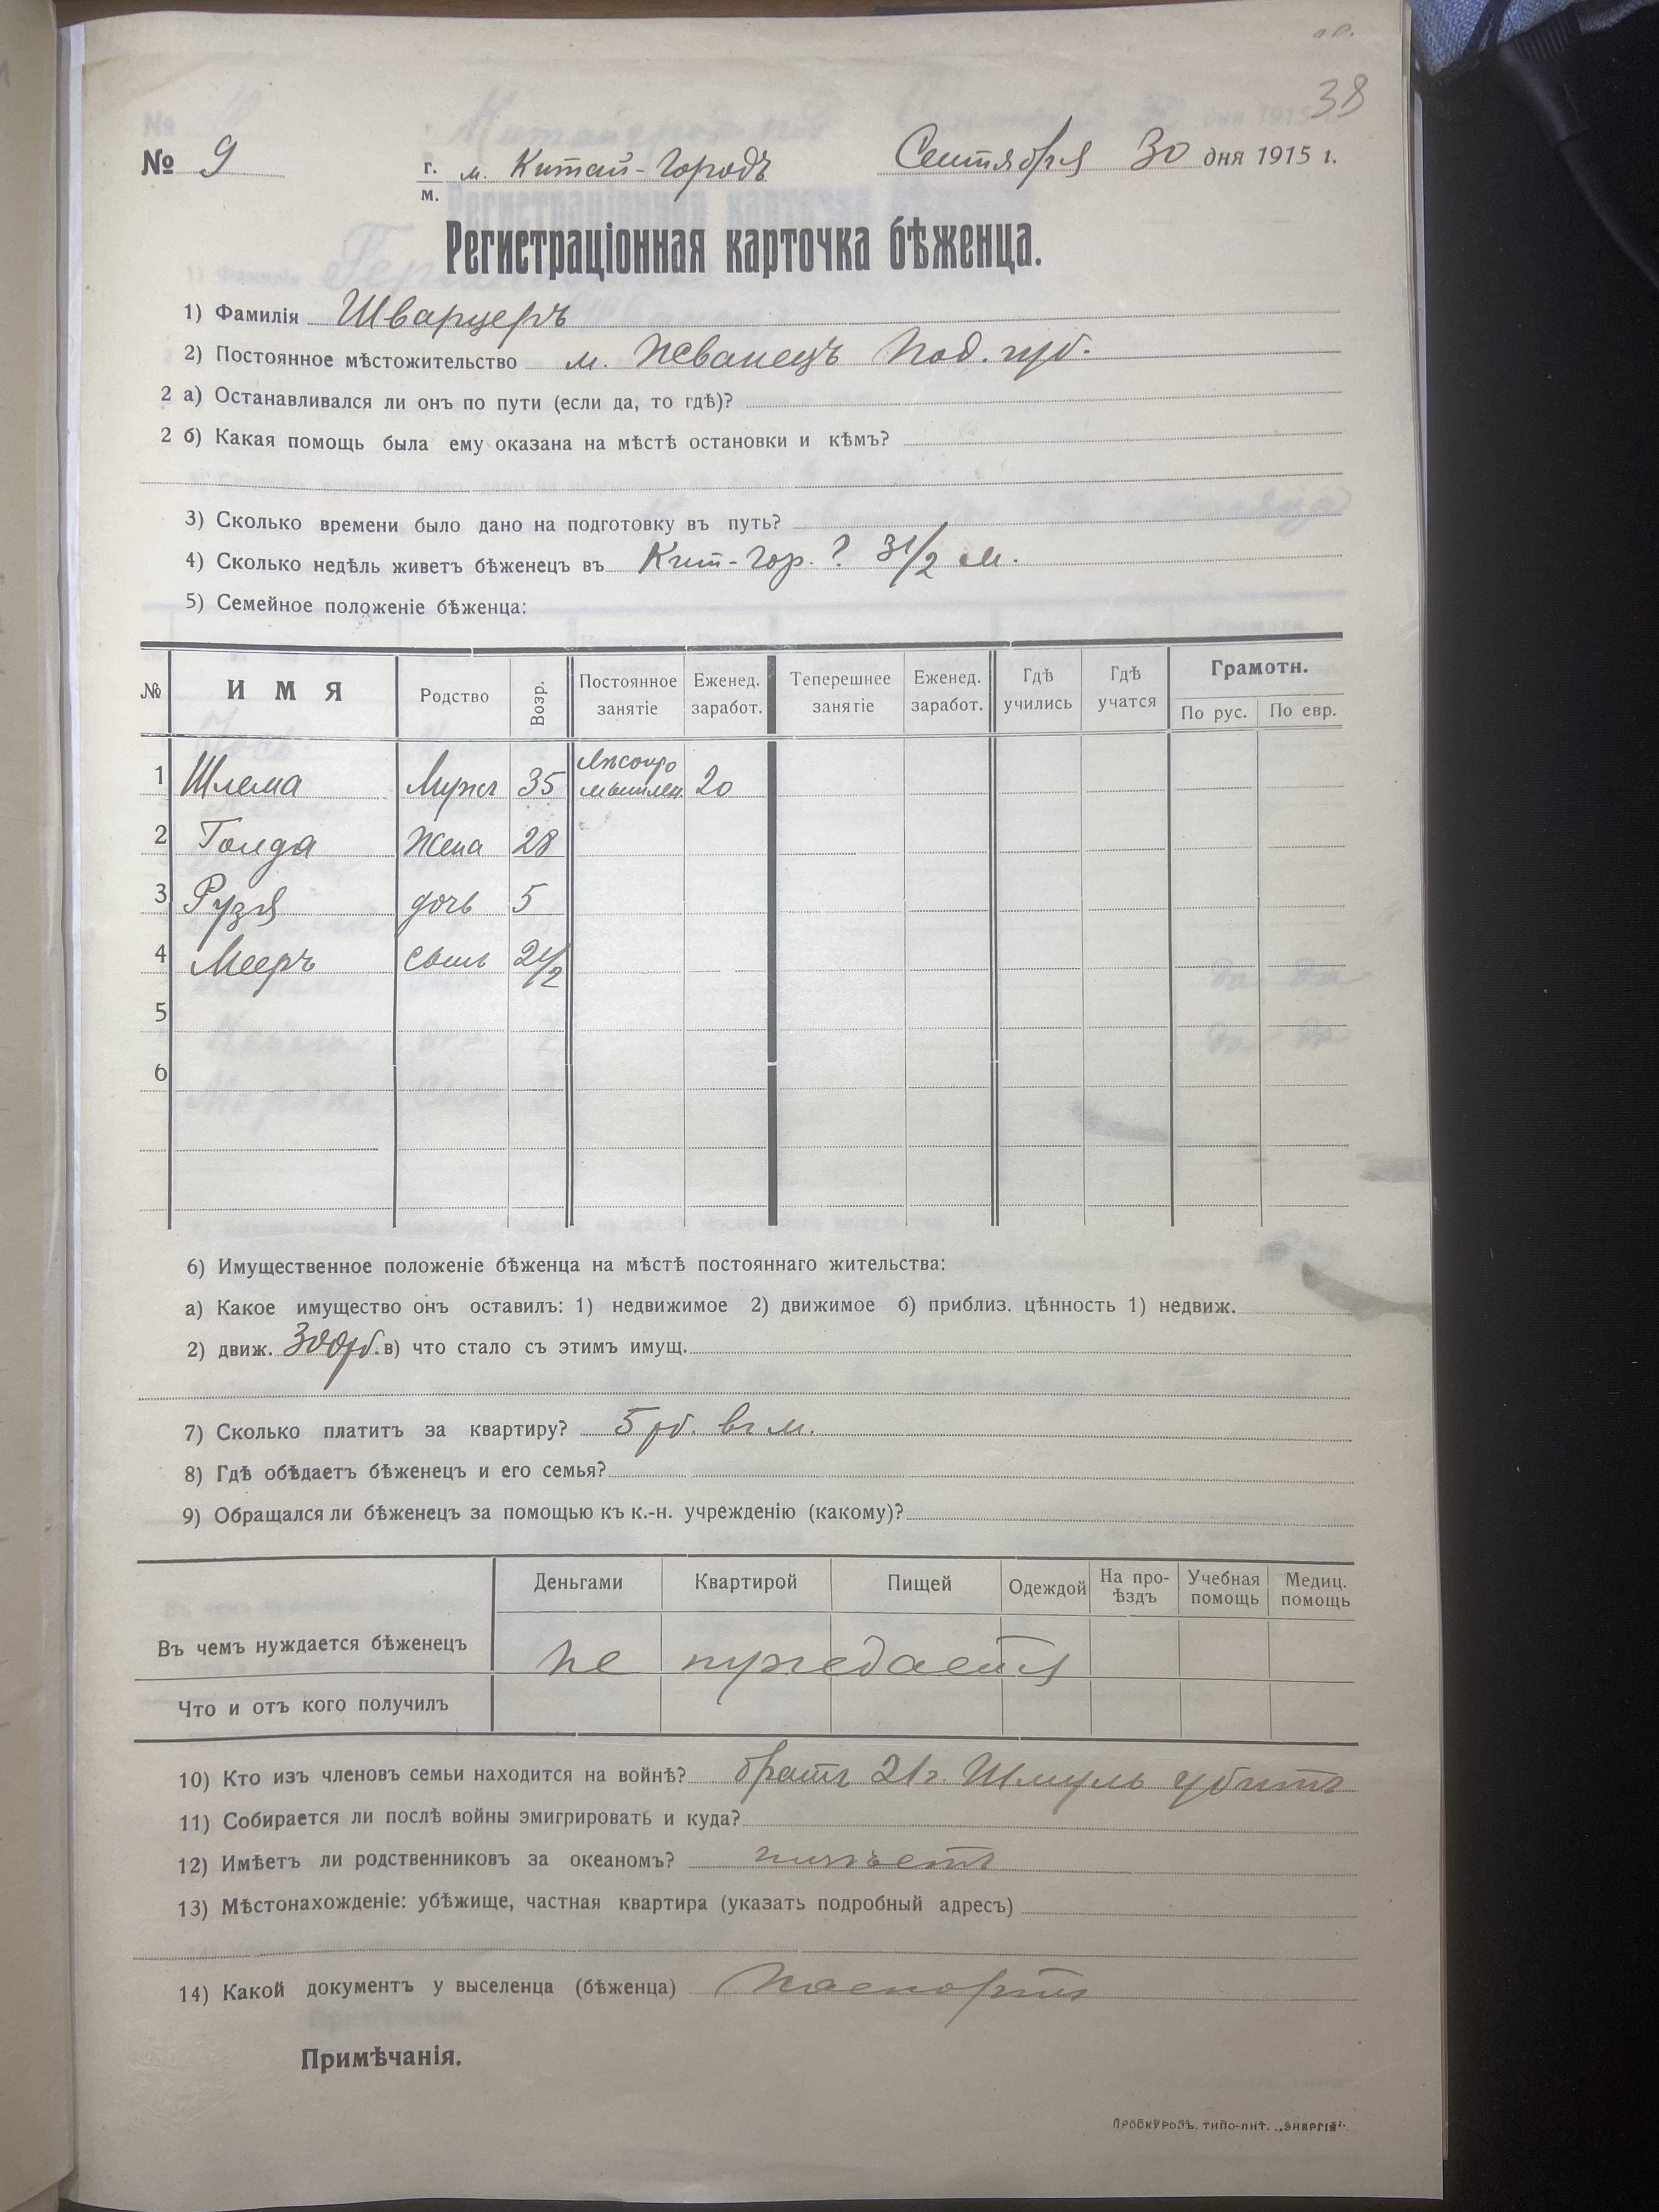 38
№ 9 г./м. м. Китай-Городъ Сентября 30 дня 1915 г.
Регистраціонная карточка бѣженца.
1) Фамилія Шварцеръ
2) Постоянное мѣстожительство м. Жванецъ Под. губ.
2 а) Останавливался ли онъ по пути (если да, то гдѣ)?
2 б) Какая помощь была ему оказана на мѣстѣ остановки и кѣмъ?
3) Сколько времени было дано на подготовку въ путь?
4) Сколько недѣль живетъ бѣженецъ въ Кит-Гор.? 3 1/2 м.
5) Семейное положеніе бѣженца:
№ ИМЯ Родство Возр. Постоянное занятіе Еженед. заработ. Теперешнее занятіе Еженед. заработ. Гдѣ учились Гдѣ учатся Грамотн. По рус. По евр.
1 Шлема Мужъ 35 лѣсопромышлен. 20
2 Голда Жена 28
3 Рузя дочь 5
4 Мееръ сынъ 2 1/2
5
6
6) Имущественное положеніе бѣженца на мѣстѣ постояннаго жительства:
а) Какое имущество онъ оставилъ: 1) недвижимое 2) движимое б) приблиз. цѣнность 1) недвиж.
2) движ. 300 рб. в) что стало съ этимъ имущ.
7) Сколько платитъ за квартиру? 5 рб. въ м.
8) Гдѣ обѣдаетъ бѣженецъ и его семья?
9) Обращался ли бѣженецъ за помощью къ к.-н. учрежденію (какому)?
Деньгами Квартирой Пищей Одеждой На про-ѣздъ Учебная помощь Медиц. помощь
Въ чемъ нуждается бѣженецъ не нуждается
Что и отъ кого получилъ
10) Кто изъ членовъ семьи находится на войнѣ? братъ 21 г. Шмуль убитъ
11) Собирается ли послѣ войны эмигрировать и куда?
12) Имѣетъ ли родственниковъ за океаномъ? имѣетъ
13) Мѣстонахожденіе: убѣжище, частная квартира (указать подробный адресъ)
14) Какой документъ у выселенца (бѣженца) Паспортъ
Примѣчанія.
ПРОСКУРОВЪ. ТИПО-ЛИТ. „ЭНЕРГІЯ".